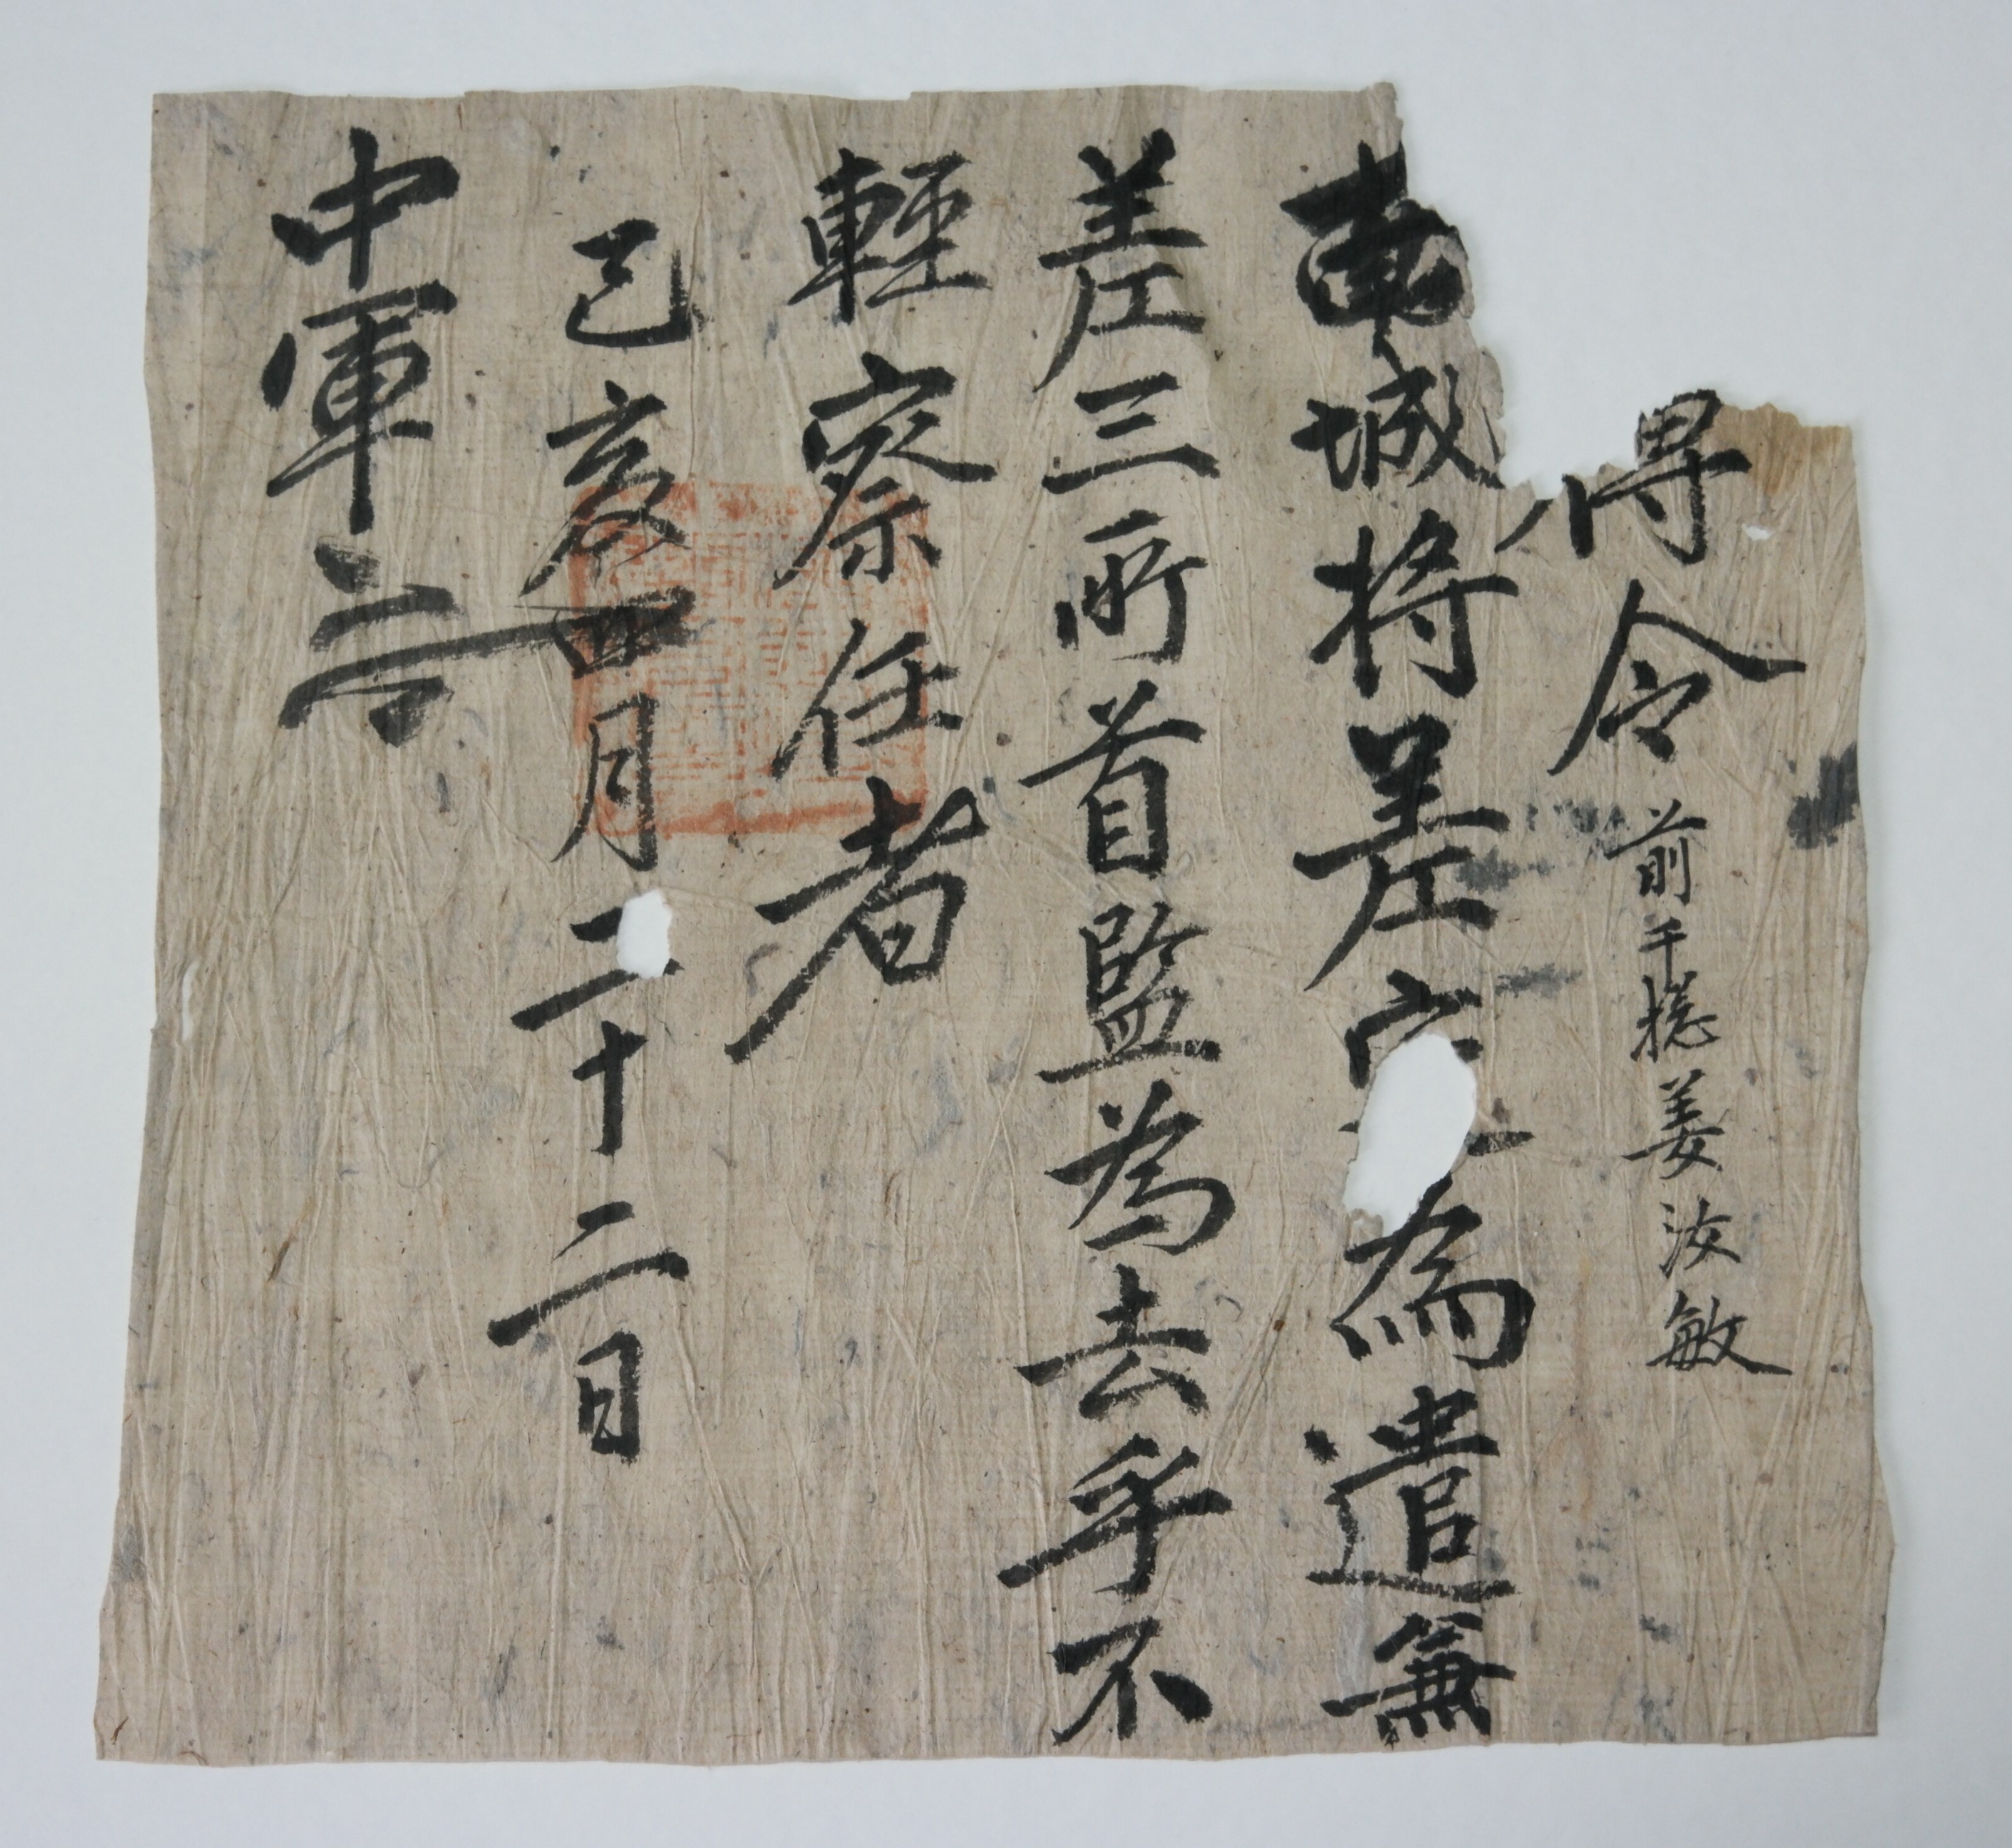 得令 前千摠姜汝敏
南城將差定爲遣兼
差三所首監爲去乎不
輕察任者
己亥四月二十二日
中軍